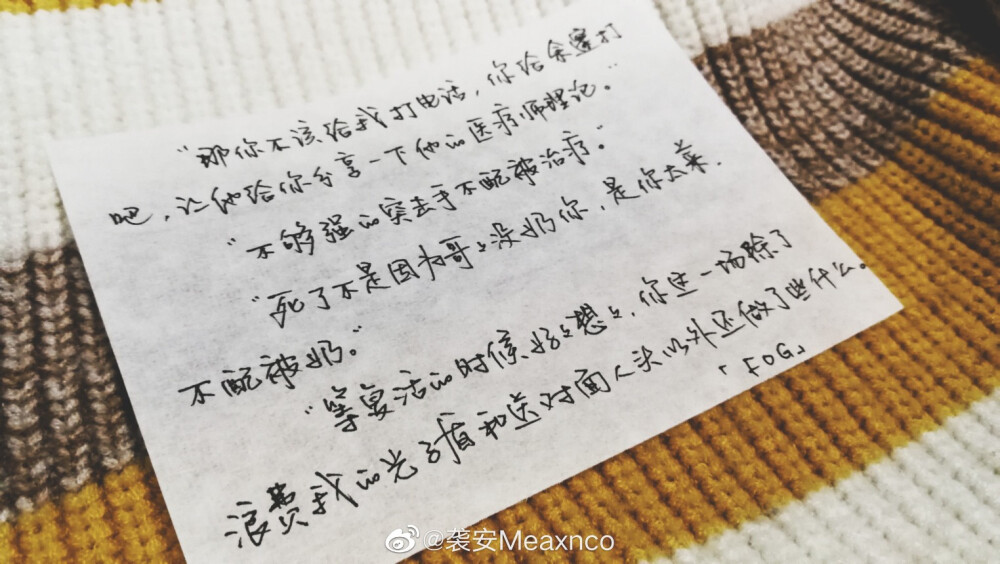 “那你不该给我打电话，你给余邃打
吧，让他给你分享一下他的医疗师笔记。”
“不够强的突击手不配被治疗。”
“死了不是因为哥哥没奶你，是你太菜，
不配被奶。”
“等复活的时候好好想想，你这一场除了
浪费我的光子盾和送对面人头以外还做了些什么。
「FOG」
@袭安Meaxnco